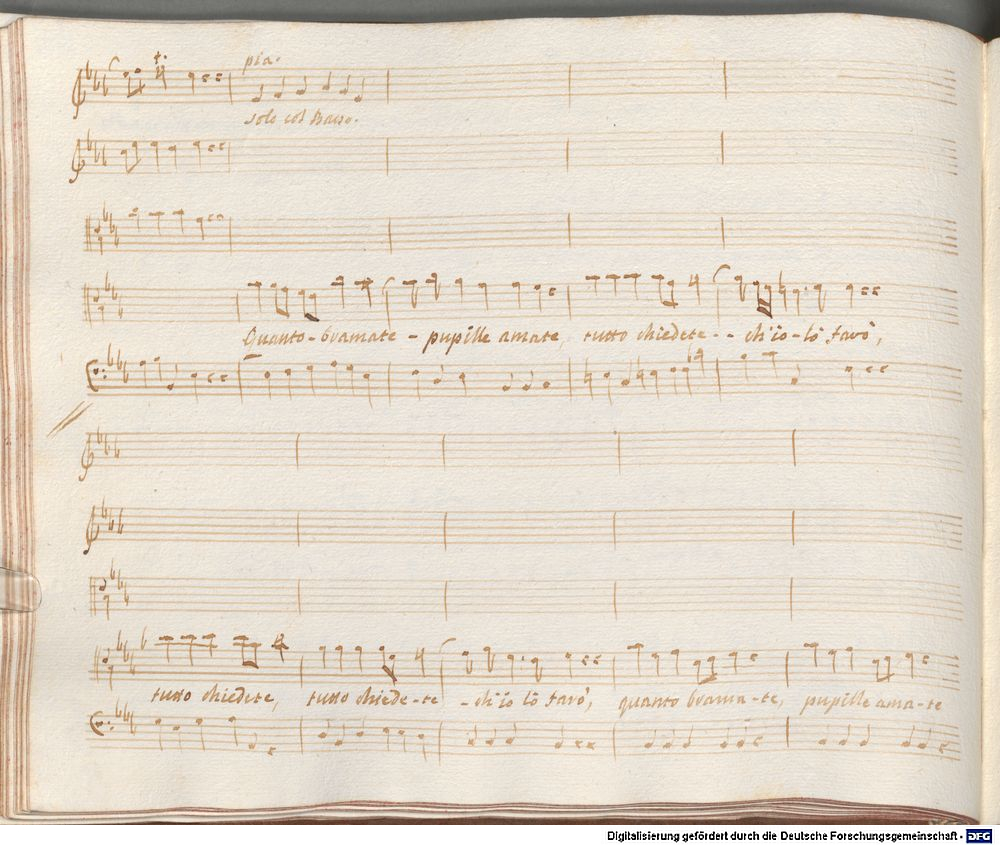 t.
pia.
solo col Basso.
Quanto - bramate - pupille amate, tutto chiedete - - ch'io - lo farò,
tutto chiedete, tutto chiede - te - ch'io lo farò, quanto brama - te, pupille ama - te
Digitalisierung gefördert durch die Deutsche Forschungsgemeinschaft - DFG